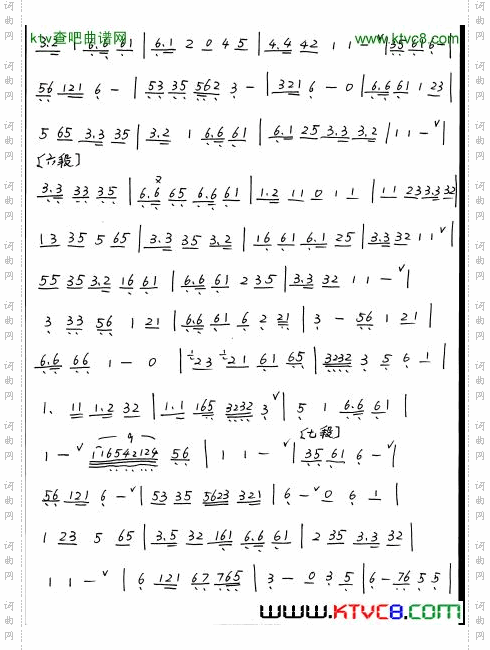 ktv查吧曲谱网 www.ktvc8.com
3.2 1 6.6 61 | 6.1 2 0 4 5 | 4.4 42 1 1 - ∨ | 35 61 6 - |
56 121 6 - | 53 35 562 3 - | 321 6 - 0 | 6.6 61 1 23 |
5 65 3.3 35 | 3.2 1 6.6 61 | 6.1 25 3.3 3.2 | 1 1 - ∨ |
[六段]
3.3 33 35 | 6.6 65 6.6 61 | 1.2 11 0 1 1 | 11 233.332
13 35 5 65 | 3.3 35 3.2 | 16 61 6.1 25 | 3.3 32 1 1 ∨ |
55 35 3.2 16 61 | 6.6 61 2 3.5 | 3.3 32 1 1 - ∨ |
3 33 56 1 21 | 6.6 61 6 2 21 | 3 - 56 1 21 |
6.6 66 1 - 0 | 23 21 61 65 | 3232 3 5 6 1 |
1. 11 1.2 32 | 1.1 165 3232 3 ∨ | 5 1 6.6 61 |
[七段]
1 - ∨ 116542124 56 | 1 1 - ∨ | 35 61 6 - ∨ |
56 121 6 - ∨ | 53 35 5623 321 | 6 - ∨ 0 6 1 |
1 23 5 65 | 3.5 32 161 6.6 61 | 2 35 3.3 32 |
1 1 - ∨ | 6 121 67 765 | 3 - 0 3 5 | 6 - 76 5 5 |
www.KTVC8.com
词曲网